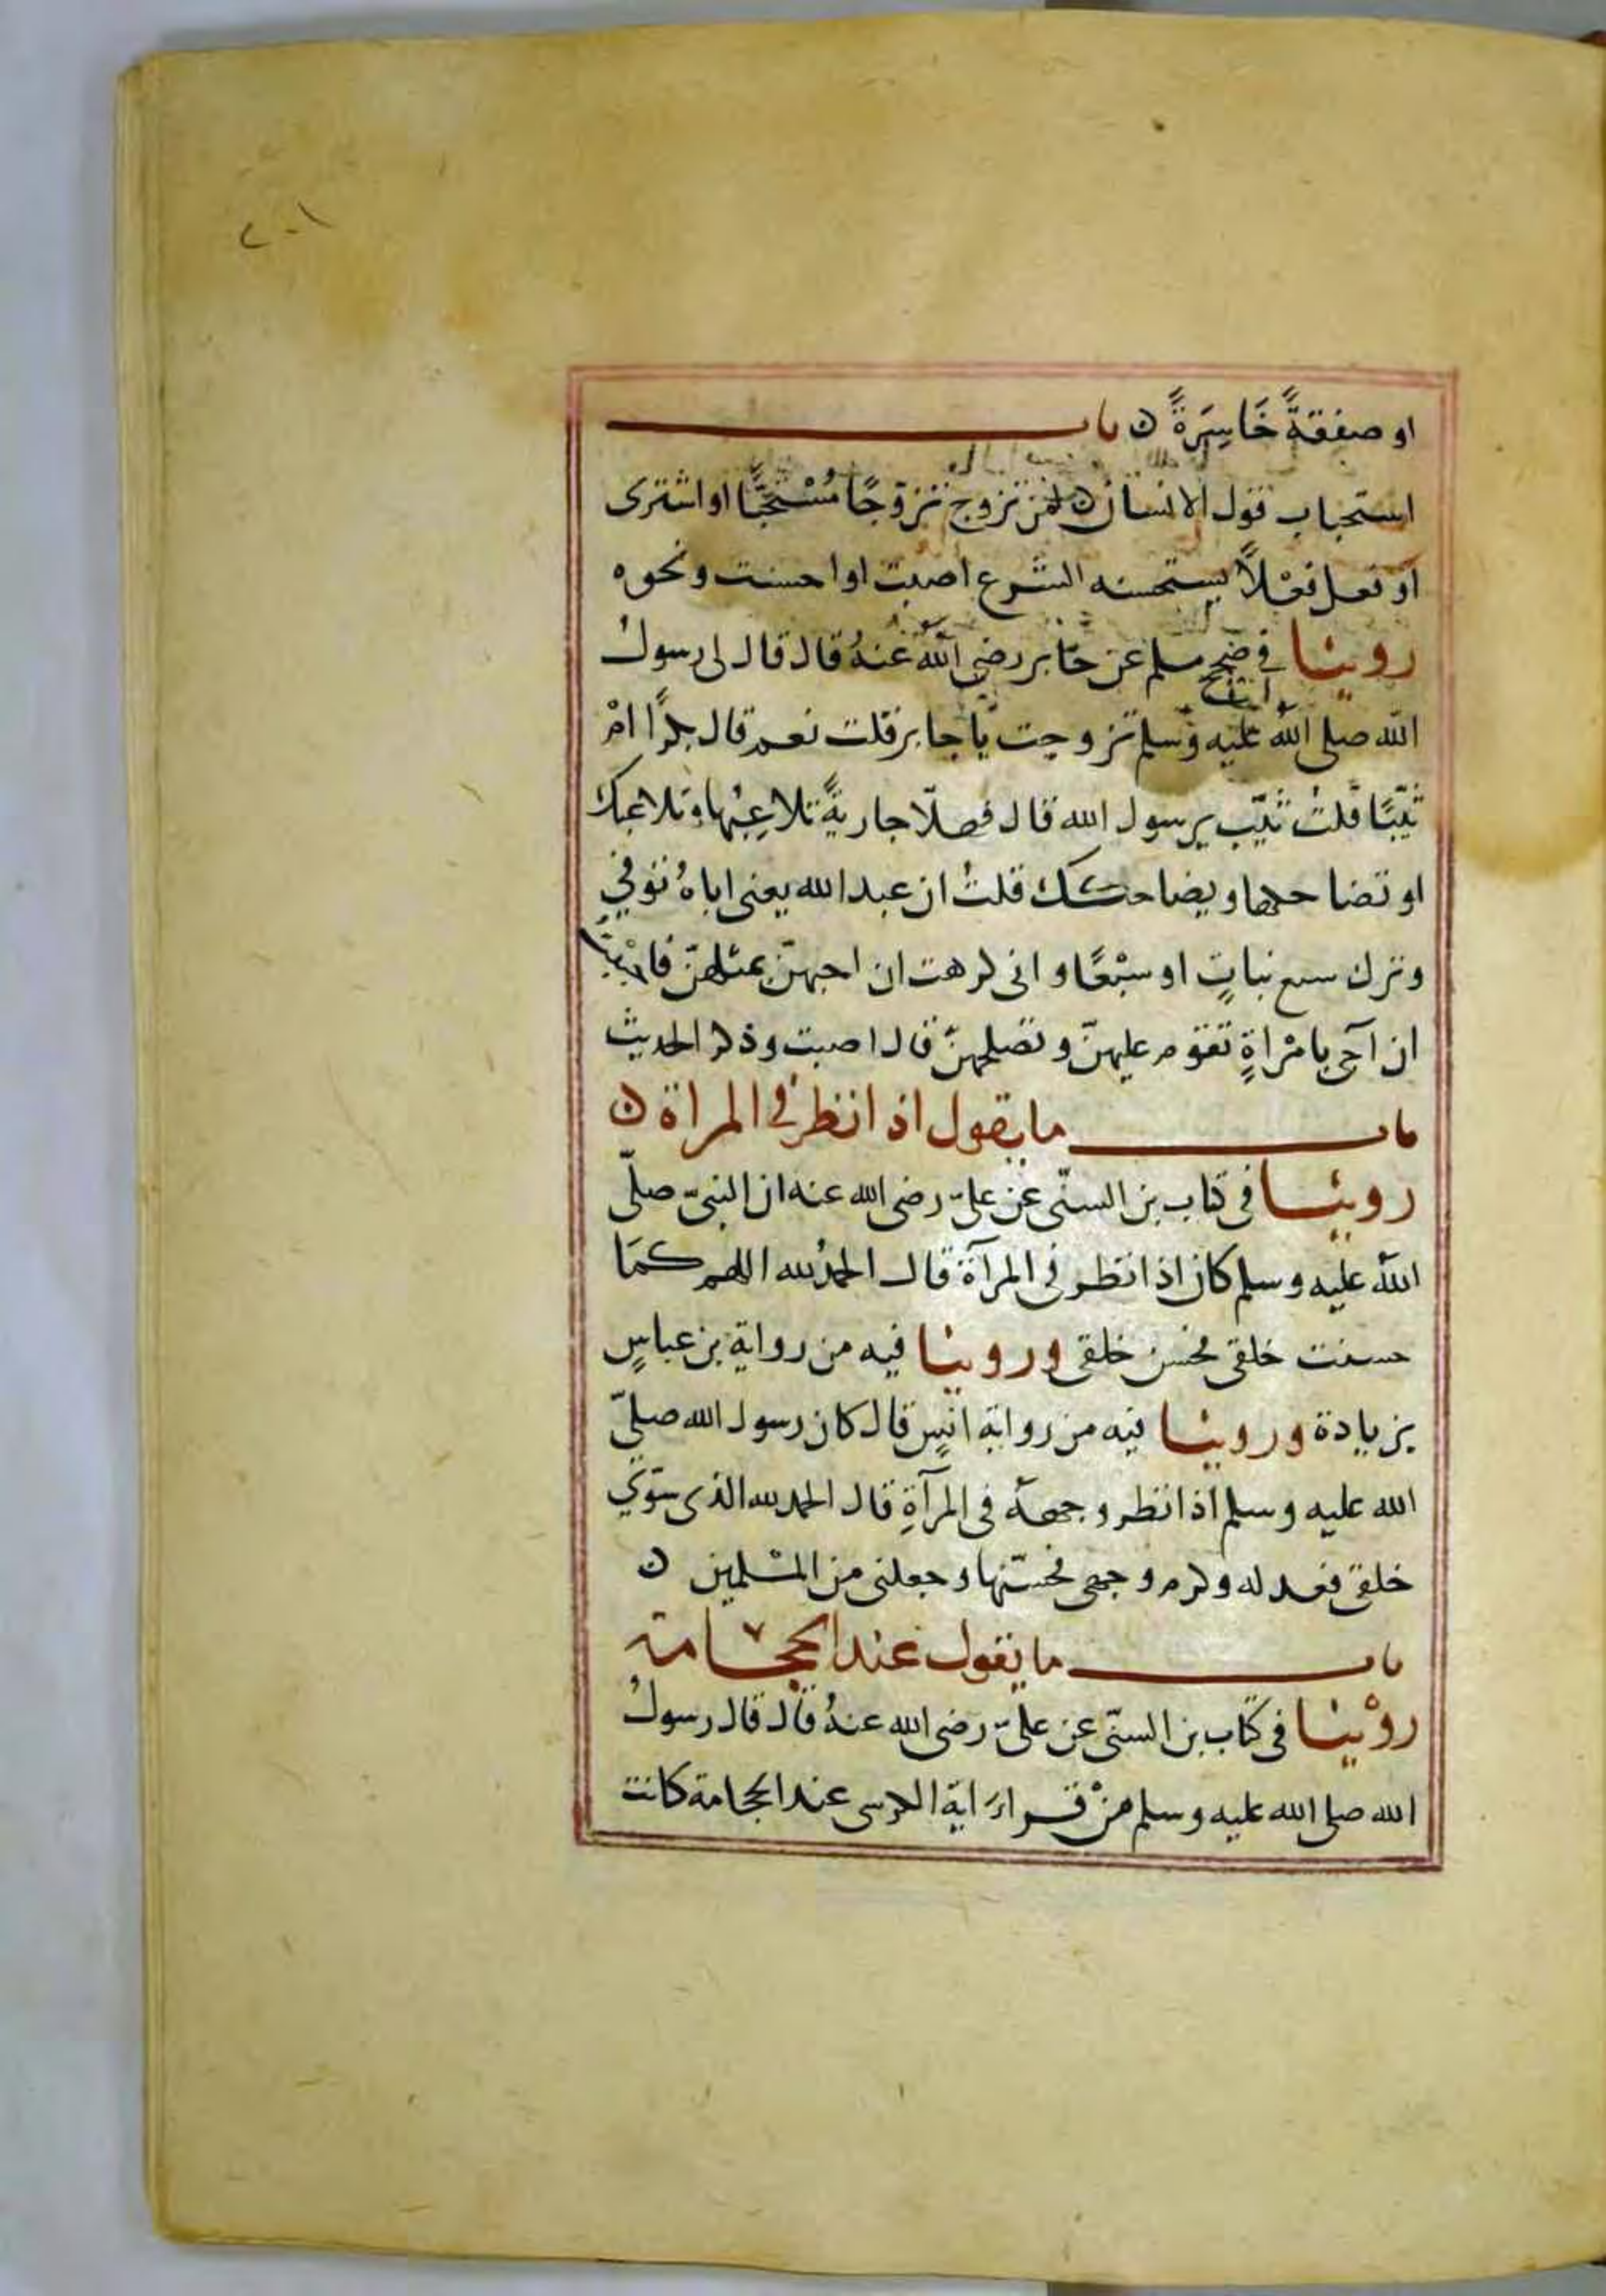 ٢٠١
او صفقةً خَاسِرَةً ن باب
استحباب قول الانسان لمن تزوج تزوجًا مُسْتحَبًّا او اشترى
او فعل فعْلاً يستحسنه الشرع اصبت او احسنت ونحوه
روينا في صحيح مسلم عن جابر رضي الله عنهُ قال قال لى رسول
الله صلى الله عليه وسلم تزوجت يا جابر قلت نعم قال بكرًا امْ
ثيّبًا قلت ثيّب يرسول الله قال فهلّا جاريةً تلاعِبُها وتلاعبك
او تضاحكها ويضاحكك قلتُ ان عبد الله يعنى اباهُ توفي
وترك سبع نباتٍ او سبْعًا وانى كرهت ان اجيهنّ بمثلهنّ فاحببتُ
ان آجى بامْراةٍ تقوم عليهنّ وتصلحهنّ قال اصبت وذكر الحديث
باب ما يقول اذا نظر في المراة ن
روينا في كتاب بن السنّى عن علىّ رضى الله عنه ان النبىّ صلّى
الله عليه وسلم كان اذا نظر في المرآة قال الحمدُ لله اللهم كمَا
حسنت خلقى فحسن خلقى وروينا فيه من رواية بن عباسٍ
بزيادة وروينا فيه من رواية انسٍ قال كان رسول الله صلىّ
الله عليه وسلم اذا نظر وجههُ في المرآةِ قال الحمد لله الذى سَوّي
خلقى فعدله وكرم وجهى فحسّنها وجعلنى من المسْلمين ن
باب ما يقول عند الحجامة
روْينا في كتاب بن السنّى عن علىّ رضى الله عنهُ قال قال رسولُ
الله صلى الله عليه وسلم منْ قراءَ اية الكرسى عند الحجامة كانت